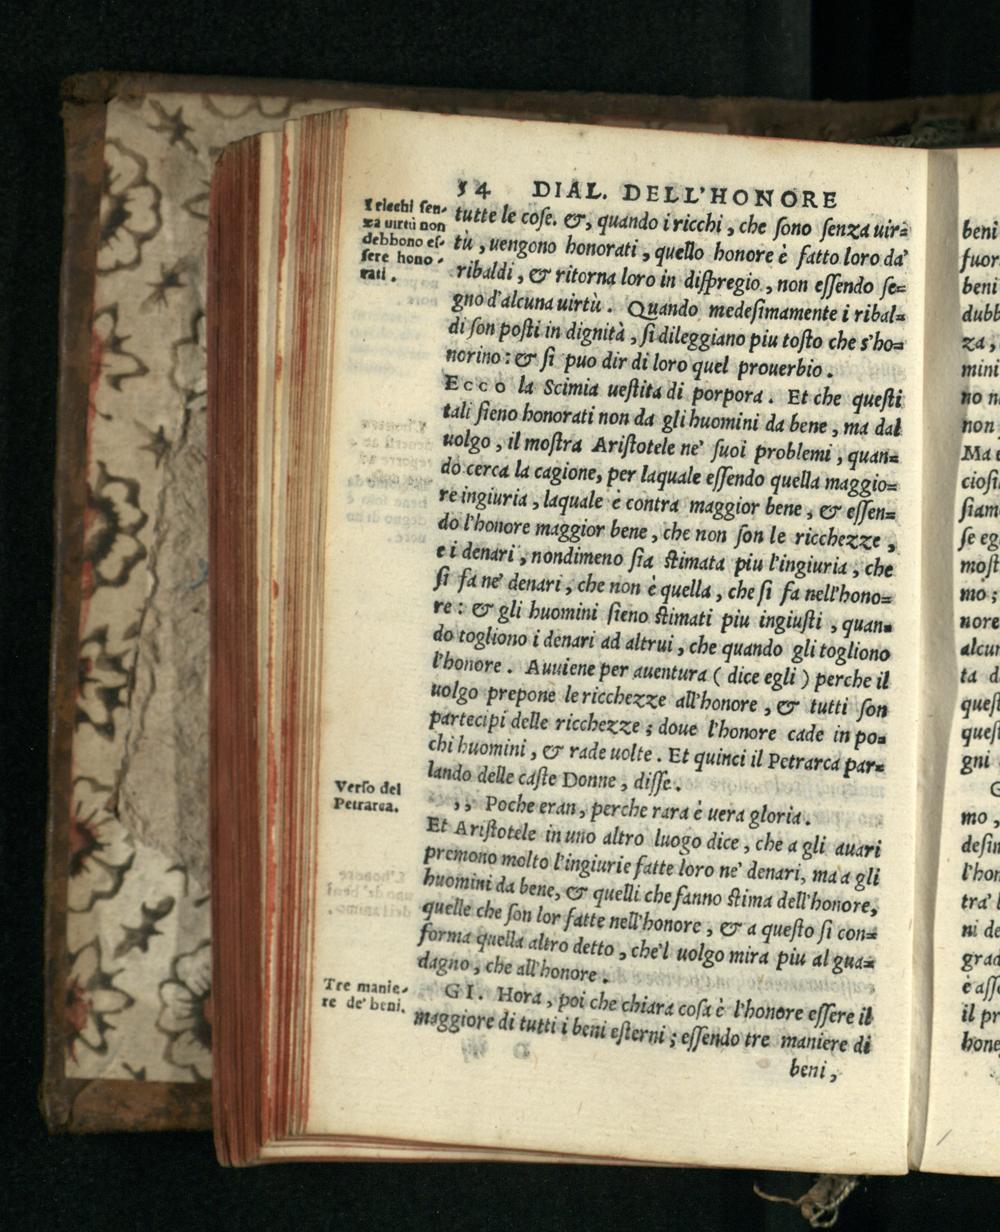 54 DIAL. DELL'HONORE
I ricchi sen-
za uirtù non
debbono es-
sere hono-
rati.
tutte le cose. &, quando i ricchi, che sono senza uir=
tù, uengono honorati, quello honore è fatto loro da'
ribaldi, & ritorna loro in dispregio, non essendo se=
gno d'alcuna uirtù. Quando medesimamente i ribal=
di son posti in dignità, si dileggiano piu tosto che s'ho=
norino: & si puo dir di loro quel prouerbio.
Ecco la Scimia uestita di porpora. Et che questi
tali sieno honorati non da gli huomini da bene, ma dal
uolgo, il mostra Aristotele ne' suoi problemi, quan=
do cerca la cagione, per laquale essendo quella maggio=
re ingiuria, laquale è contra maggior bene, & essen=
do l'honore maggior bene, che non son le ricchezze,
e i denari, nondimeno sia stimata piu l'ingiuria, che
si fa ne' denari, che non è quella, che si fa nell'hono=
re: & gli huomini sieno stimati piu ingiusti, quan=
do togliono i denari ad altrui, che quando gli togliono
l'honore. Auuiene per auentura (dice egli) perche il
uolgo prepone le ricchezze all'honore, & tutti son
partecipi delle ricchezze; doue l'honore cade in po=
chi huomini, & rade uolte. Et quinci il Petrarca par=
lando delle caste Donne, disse.
Verso del
Petrarca.
,, Poche eran, perche rara è uera gloria.
Et Aristotele in uno altro luogo dice, che a gli auari
premono molto l'ingiurie fatte loro ne' denari, ma a gli
huomini da bene, & quelli che fanno stima dell'honore,
quelle che son lor fatte nell'honore, & a questo si con=
forma quella altro detto, che'l uolgo mira piu al gua=
dagno, che all'honore.
Tre manie-
re de' beni.
GI. Hora, poi che chiara cosa è l'honore essere il
maggiore di tutti i beni esterni; essendo tre maniere di
beni,
beni
fuor
beni
dubb
za,
mini
no n
non
Ma
ciosi
siam
se eg
most
mo;
nore
alcun
ta d
ques
ques
gni
G
mo,
desin
l'hon
tra'
ni de
grad
è ass
il pr
hone